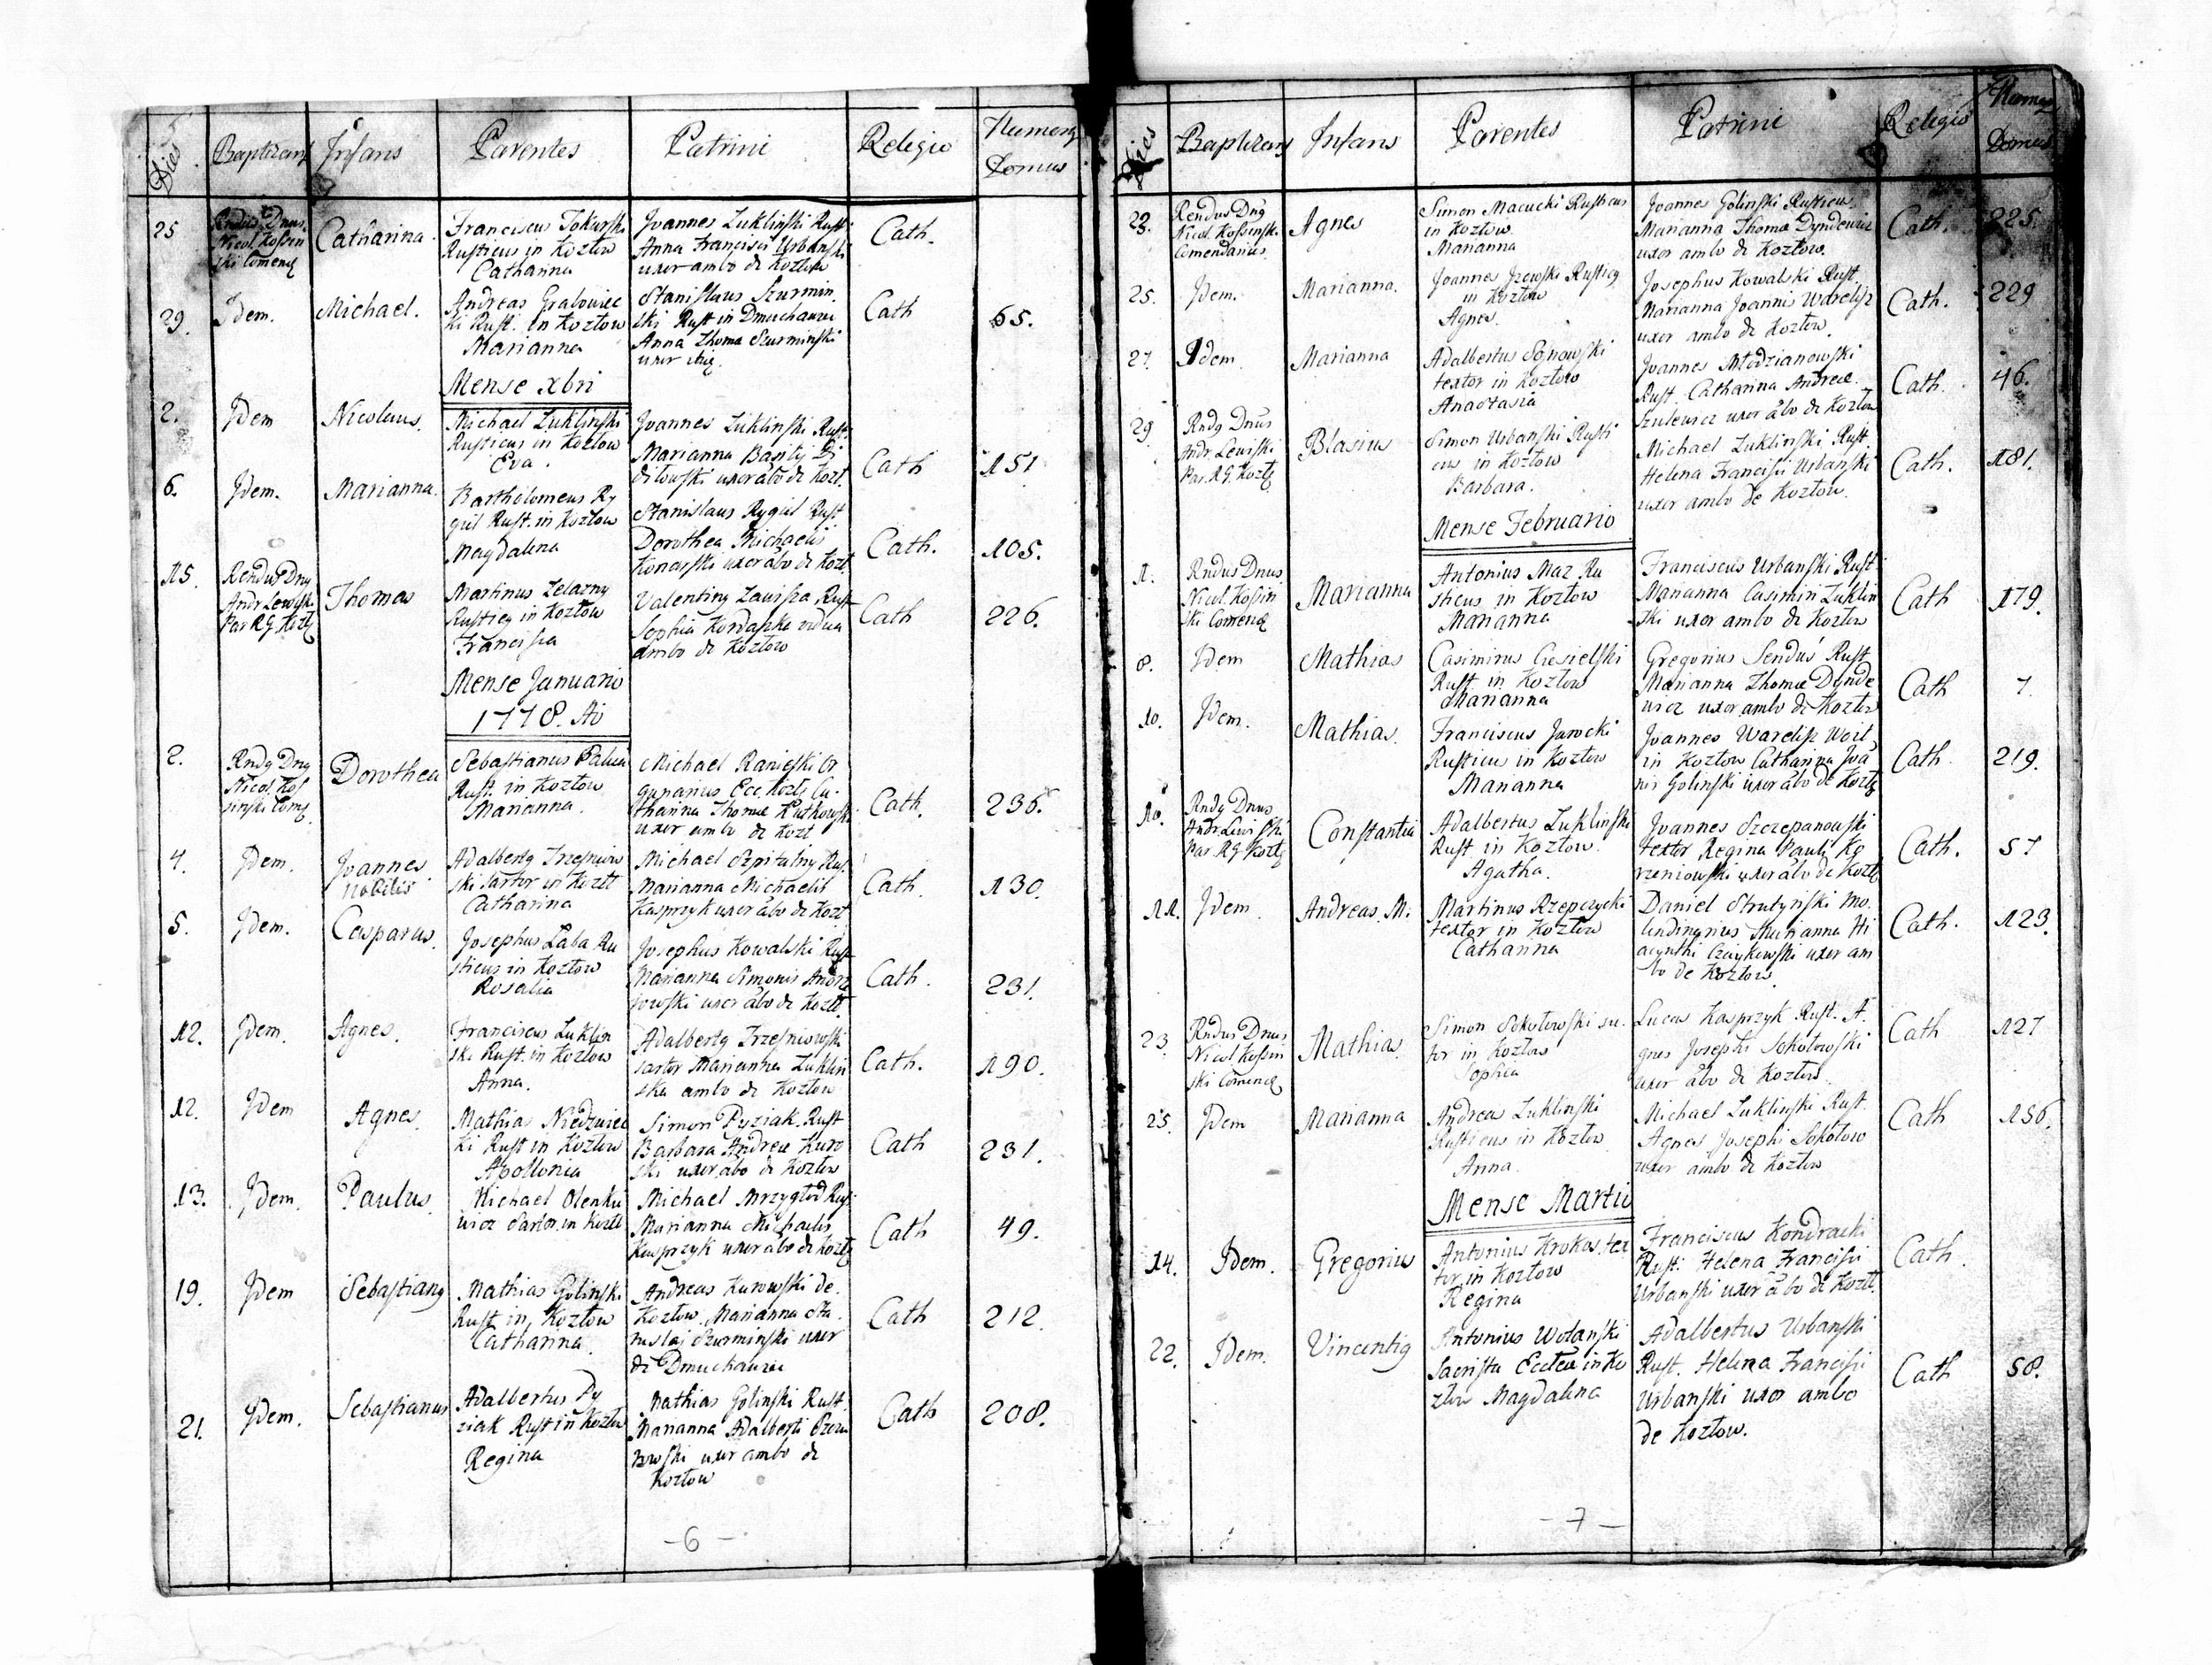 Dies Baptizans Infans Parentes Patrini Religio Numerus Domus
25 Rndus Dnus Nicol. Kossin Catharina Franciscus Tokarski Joannes Luklinski Rust. Cath.
ski Comend Rusticus in Kozlow Anna Francisci Urbanski
Catharina uxor ambo de Kozlow
29. Idem. Michael. Andreas Grabowiec Stanislaus Szurmin Cath 65.
ki Rust. in Kozlow ski Rust in Dmuchawei
Marianna Anna Thoma Szurminski
uxor
Mense Xbri
2. Idem Nicolaus. Michael Luklinski Joannes Luklinski Rust. Cath 151
Rusticus in Kozlow Marianna Basily Di
Eva. dilowski uxor abo de Kozl.
6. Idem. Marianna. Bartholomeus Ry Stanislaus Rygiel Rust Cath. 105.
giel Rust. in Kozlow Dorothea Michaelis
Magdalena uxor abo de Kozl.
15. Rendus Dnus Thomas Martinus Zelazny Valentinq Zawisza Rust Cath 226.
Andr Lewiski Rusticq in Kozlow Sophia vidua
Par RG. Kozlq Francisca ambo de Kozlow
Mense Januario
1778. Ao
2. Rndq Dnq Dorothea Sebastianus Michael Ranieski Or Cath. 236.
Nicol. Kos Rust. in Kozlow ganarius Ecc. Kozlq Ca-
sinski Comq Marianna. tharina Thoma Rutkowski
uxor ambo de Kozl
4. Idem. Joannes Adalbertq Trzesniow Michael Szpitalny Rus. Cath. 130.
nobilis ski Sartor in Kozll Marianna Michaelis
Catharina Kasprzyk uxor abo de Kozl
5. Idem. Casparus. Josephus Laba Ru Josephus Kowalski Rust Cath. 231.
sticus in Kozlow Marianna Simonis Andrze
Rosalia jowski uxor abo de Kozll.
12. Idem. Agnes. Franciscus Luklin Adalbertq Trzesniowski Cath. 190.
ski Rust. in Kozlow sartor Marianna Luklin
Anna. ska ambo de Kozlow
12. Idem Agnes. Mathias Niedzwiec Simon Pyziak Rust Cath 231.
ki Rust in Kozlow Barbara Andrea Kuro
Apollonia ski uxor abo de Kozlow
13. Idem. Paulus. Michael Olenki Michael Mrzyglod Rus. Cath 49.
wicz Sartor in Kozll Marianna Michaelis
Kasprzyk uxor abo de Kozlq
19. Idem Sebastianq Mathias Golinski Andreas Kurowski de Cath 212.
Rust in Kozlow Kozlow. Marianna Sta
Catharina. nislai Szurminski uxor
de Dmuchawei
21. Idem. Sebastianus Adalbertus Py Mathias Golinski Rust. Cath 208.
ziak Rust in Kozlow Marianna Adalberti
Regina uxor ambo de
Kozlow
-6-
Dies Baptizans Infans Parentes Patrini Religio Numerus Domus
23. Rendus Dnq Agnes Simon Macucki Rusticus Joannes Golinski Rusticus. Cath. 225.
Nicol Kossinski in Kozlow. Marianna Thoma Dyndewicz
Comendarius Marianna uxor ambo de Kozlow.
25. Idem. Marianna. Joannes Rusticq Josephus Kowalski Rust. Cath. 229
in Kozlow Marianna Joannis Warelis
Agnes. uxor ambo de Kozlow.
27. Idem Marianna Adalbertus Joannes Mlodzianowski Cath. 46.
textor in Kozlow Rust. Catharina Andreae
Anastasia Szulewicz uxor abo de Kozlow
29 Rndq Dnus Blasius Simon Urbanski Rusti Michael Luklinski Rust. Cath. 181.
Andr. Lewiski cus in Kozlow Helena Francisci Urbanski
Par. RG. Kozlq Barbara. uxor ambo de Kozlow.
Mense Februario
1. Rndus Dnus Marianna Antonius Maz Ru Franciscus Urbanski Rust. Cath 179.
Nicol. Kossin sticus in Kozlow Marianna Casimiri Luklin
ski Comend Marianna ski uxor ambo de Kozlow
8. Idem Mathias Casimirus Ciesielski Gregorius Senduś Rust. Cath 7.
Rust. in Kozlow Marianna Thoma Dynde
Marianna wicz uxor ambo de Kozlow
10. Idem. Mathias. Franciscus Jarocki Joannes Warelis. Woit Cath. 219.
Rusticus in Kozlow in Kozlow Catharina Joa
Marianna nis Golinski uxor abo de Kozlq
10. Rndq Dnus Constantia Adalbertus Luklinski Joannes Szczepanowski Cath. 57
Andr. Lewiski Rust in Kozlow. textor Regina Pauli Ko
Par. RG Kozlq Agatha. rzeniowski uxor abo de Kozlq
11. Idem. Andreas. M. Martinus Rzepczycki Daniel Strutyński Mo. Cath. 123.
textor in Kozlow Marianna Hi
Catharina acynthi Czaykowski uxor am
bo de Kozlow.
23. Rndus Dnus Mathias. Simon Sokolowski su. Lucas Kasprzyk Rust. A. Cath 127
Nicol Kossin tor in Kozlow gnes Josephi Sokolowski
ski Comend Sophia uxor abo de Kozlow.
25. Idem Marianna Andreas Luklinski Michael Luklinski Rust. Cath 156.
Rusticus in Kozlow Agnes Josephi Sokolow
Anna. uxor ambo de Kozlow
Mense Martii
14. Idem. Gregorius Antonius Krokos, tex Franciscus Kondracki Cath.
tor in Kozlow Rust. Helena Francisci
Regina Urbanski uxor abo de Kozll.
22. Idem. Vincentiq Antonius Wolanski Adalbertus Urbanski Cath 58.
sacrista Ecclea in Ko Rust. Helena Francisci
zlow Magdalena Urbanski uxor ambo
de Kozlow.
-7-